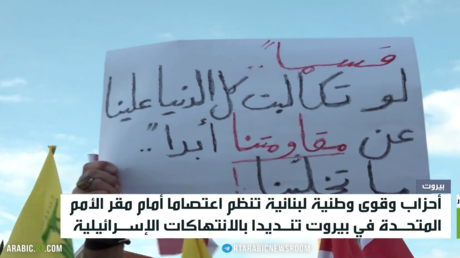 قسماً..
لو تكالبت كل الدنيا علينا
عن مقاومتنا أبداً..
ما تخلّينا!
بيروت
أحزاب وقوى وطنية لبنانية تنظم اعتصاما أمام مقر الأمم
المتحدة في بيروت تنديدا بالانتهاكات الإسرائيلية
ARABIC.
@RTARABICNEWSROOM